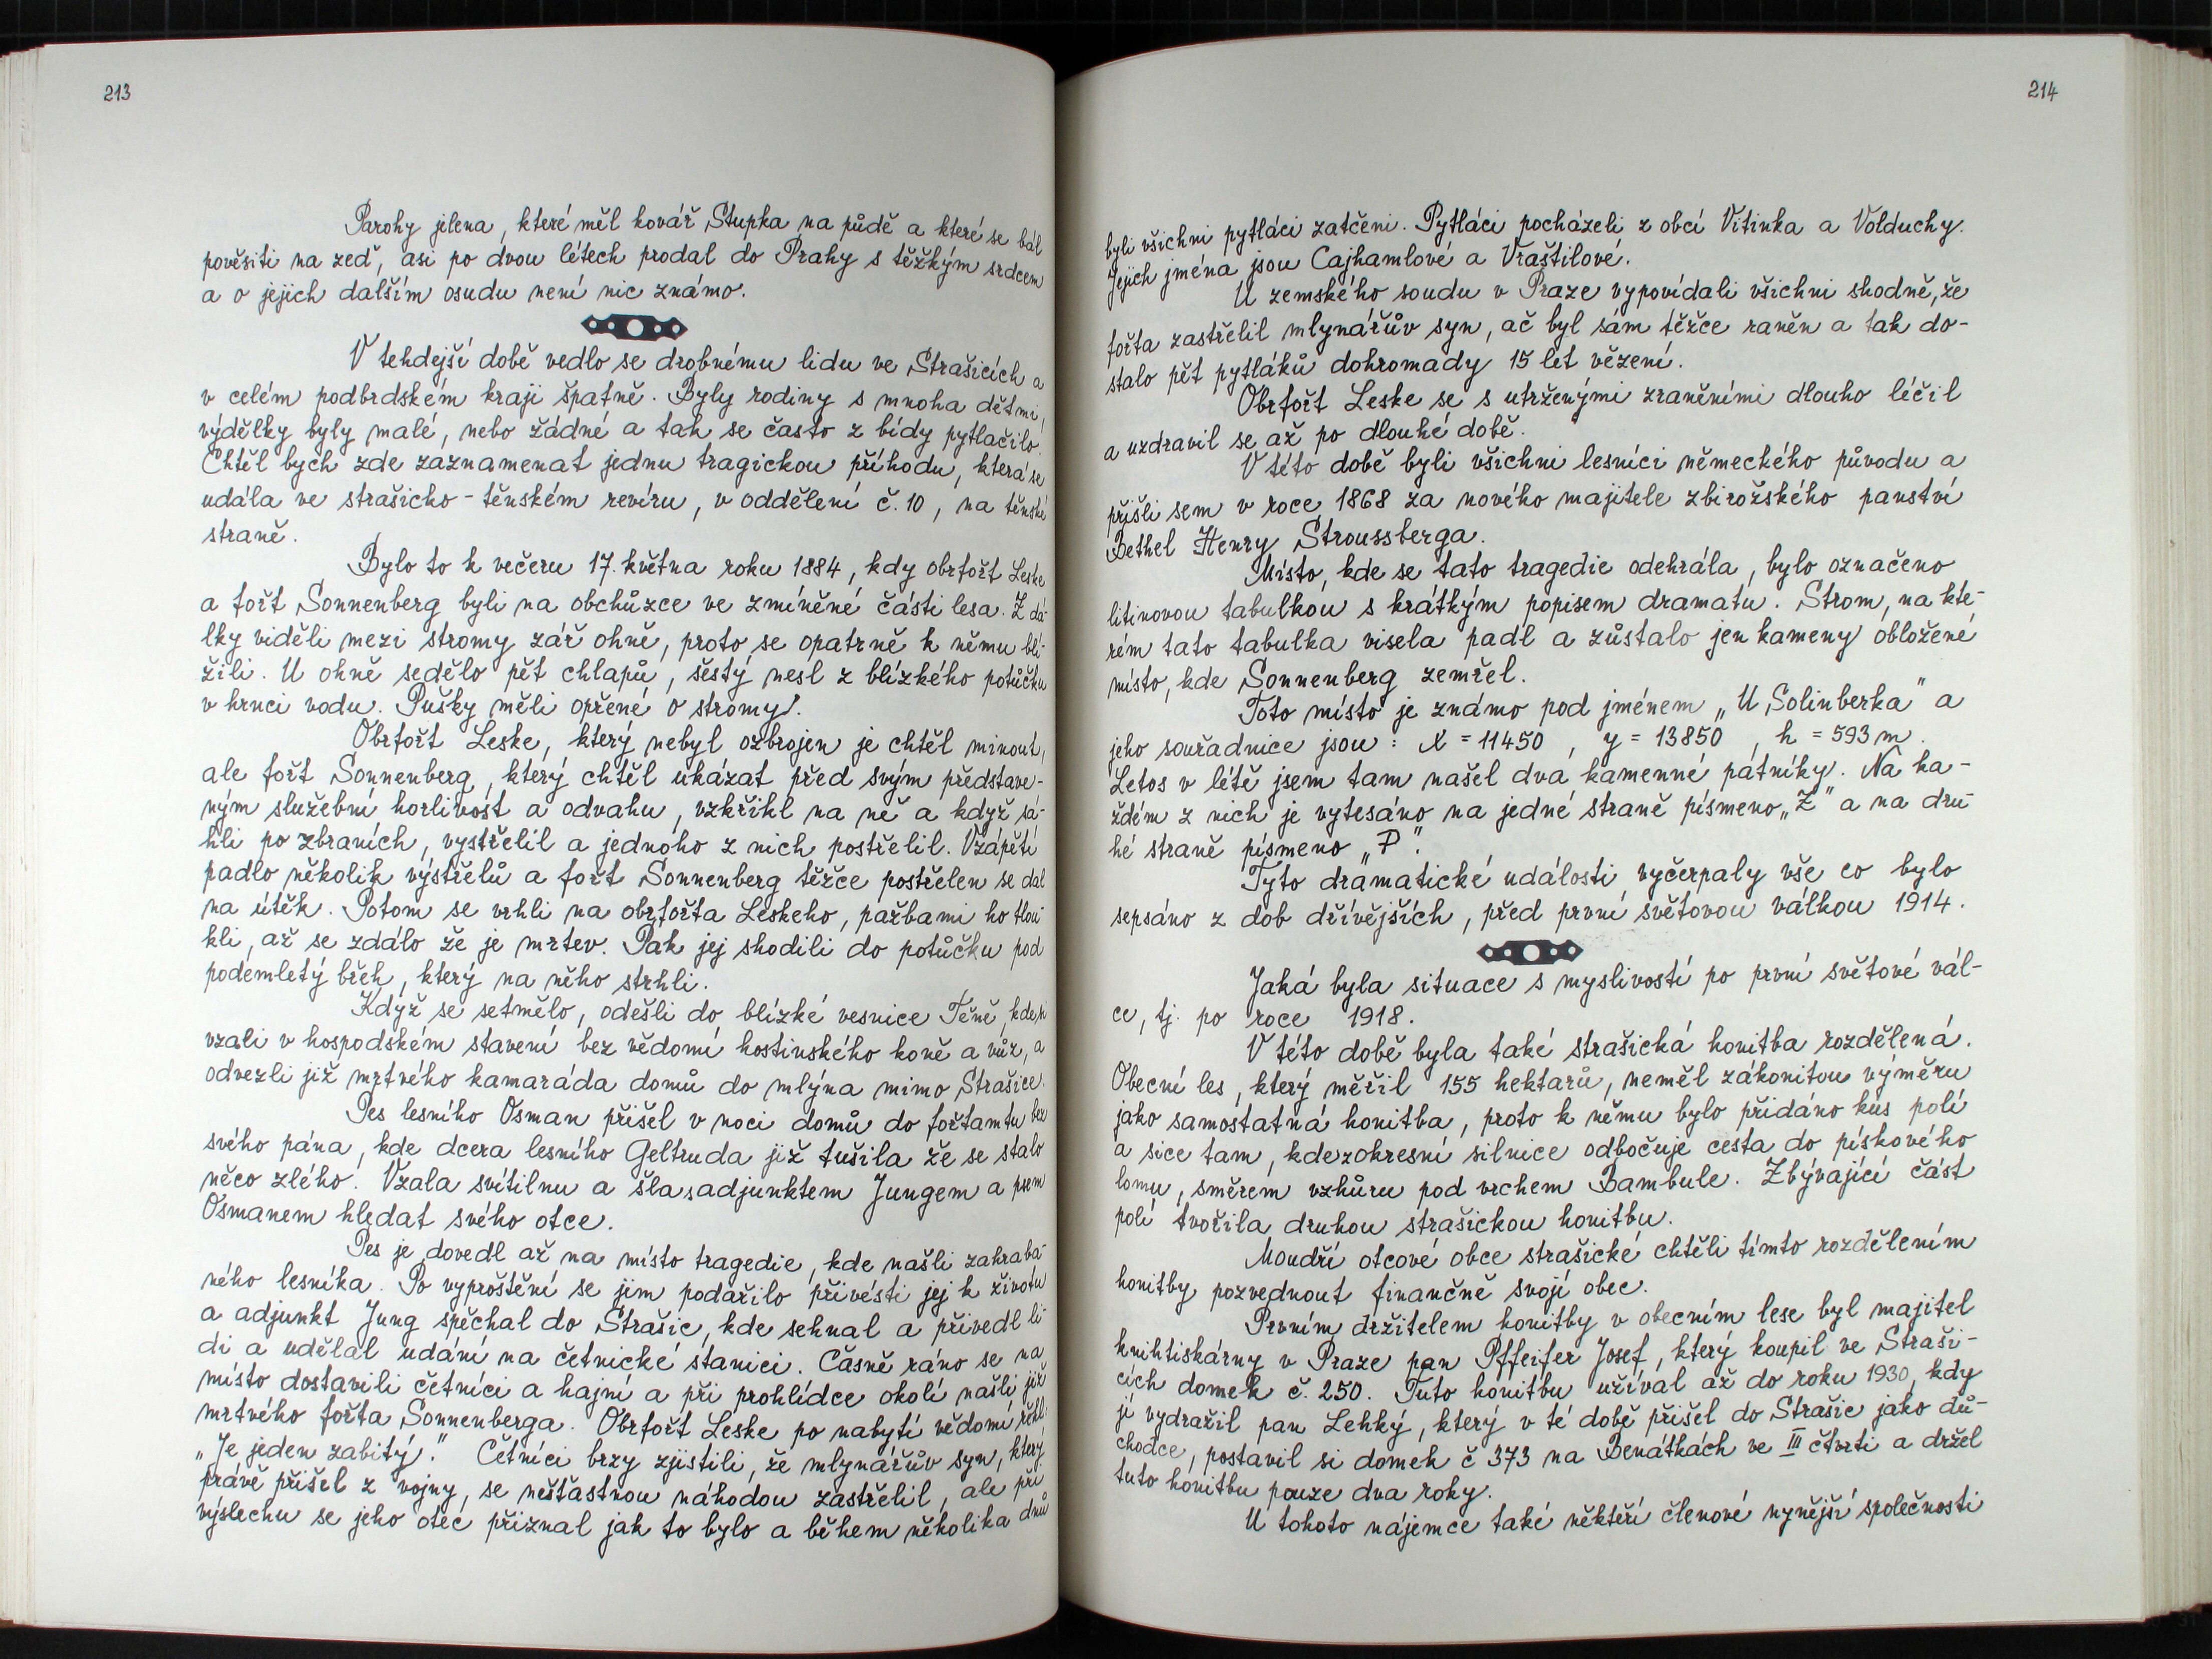 213
Parohy jelena, které měl kovář Stupka na půdě a které se bál
pověsiti na zeď, asi po dvou létech prodal do Prahy s těžkým srdcem
a o jejich dalším osudu není nic známo.
V tehdejší době vedlo se drobnému lidu ve Strašicích a
v celém podbrdském kraji špatně. Byly rodiny s mnoha dětmi,
výdělky byly malé, nebo žádné a tak se často z bídy pytlačilo.
Chtěl bych zde zaznamenat jednu tragickou příhodu, která se
udála ve strašicko-těnském revíru, v oddělení č. 10, na těnské
straně.
Bylo to k večeru 17. května roku 1884, kdy obrfořt Leske
a fořt Sonnenberg byli na obchůzce ve zmíněné části lesa. Z dá-
lky viděli mezi stromy zář ohně, proto se opatrně k němu blí-
žili. U ohně sedělo pět chlapů, šestý nesl z blízkého potůčku
v hrnci vodu. Pušky měli opřené o stromy.
Obrfořt Leske, který nebyl ozbrojen je chtěl minout,
ale fořt Sonnenberg, který chtěl ukázat před svým představe-
ným služební horlivost a odvahu, vzkřikl na ně a když sá-
hli po zbraních, vystřelil a jednoho z nich postřelil. Vzápětí
padlo několik výstřelů a fořt Sonnenberg těžce postřelen se dal
na útěk. Potom se vrhli na obrfořta Leskeho, pažbami ho tlou-
kli, až se zdálo že je mrtev. Pak jej shodili do potůčku pod
podemletý břeh, který na něho strhli.
Když se setmělo, odešli do blízké vesnice Těně, kde si
vzali v hospodském stavení bez vědomí hostinského koně a vůz, a
odvezli již mrtvého kamaráda domů do mlýna mimo Strašice.
Pes lesního Osman přišel v noci domů do fořtamtu bez
svého pána, kde dcera lesního Geltruda již tušila že se stalo
něco zlého. Vzala svítilnu a šla s adjunktem Jungem a psem
Osmanem hledat svého otce.
Pes je dovedl až na místo tragedie, kde našli zahrabá-
ného lesníka. Po vyproštění se jim podařilo přivésti jej k životu
a adjunkt Jung spěchal do Strašic, kde sehnal a přivedl li-
di a udělal udání na četnické stanici. Časně ráno se na
místo dostavili četníci a hajní a při prohlídce okolí našli již
mrtvého fořta Sonnenberga. Obrfořt Leske po nabytí vědomí řekl:
„Je jeden zabitý." Četníci brzy zjistili, že mlynářův syn, který
právě přišel z vojny, se nešťastnou náhodou zastřelil, ale při
výslechu se jeho otec přiznal jak to bylo a během několika dnů
214
byli všichni pytláci zatčeni. Pytláci pocházeli z obcí Vitinka a Volduchy.
Jejich jména jsou Cajhamlové a Vraštilové.
U zemského soudu v Praze vypovídali všichni shodně, že
fořta zastřelil mlynářův syn, ač byl sám těžce raněn a tak do-
stalo pět pytláků dohromady 15 let vězení.
Obrfořt Leske se s utrženými zraněními dlouho léčil
a uzdravil se až po dlouhé době.
V této době byli všichni lesníci německého původu a
přišli sem v roce 1868 za nového majitele zbirožského panství
Bethel Henry Stroussberga.
Místo, kde se tato tragedie odehrála, bylo označeno
litinovou tabulkou s krátkým popisem dramatu. Strom, na kte-
rém tato tabulka visela padl a zůstalo jen kameny obložené
místo, kde Sonnenberg zemřel.
Toto místo je známo pod jménem „U Solinberka" a
jeho souřadnice jsou: X = 11450, y = 13850, h = 593 m.
Letos v létě jsem tam našel dva kamenné patníky. Na ka-
ždém z nich je vytesáno na jedné straně písmeno „Z" a na dru-
hé straně písmeno „P".
Tyto dramatické události vyčerpaly vše co bylo
sepsáno z dob dřívějších, před první světovou válkou 1914.
Jaká byla situace s myslivostí po první světové vál-
ce, tj. po roce 1918.
V této době byla také strašická honitba rozdělená.
Obecní les, který měřil 155 hektarů, neměl zákonitou výměru
jako samostatná honitba, proto k němu bylo přidáno kus polí
a sice tam, kde z okresní silnice odbočuje cesta do pískového
lomu, směrem vzhůru pod vrchem Bambule. Zbývající část
polí tvořila druhou strašickou honitbu.
Moudří otcové obce strašické chtěli tímto rozdělením
honitby pozvednout finančně svojí obec.
Prvním držitelem honitby v obecním lese byl majitel
knihtiskárny v Praze pan Pffeifer Josef, který koupil ve Straši-
cích domek č. 250. Tuto honitbu užíval až do roku 1930, kdy
ji vydražil pan Lehký, který v té době přišel do Strašic jako dů-
chodce, postavil si domek č 373 na Benátkách ve III čtvrti a držel
tuto honitbu pouze dva roky.
U tohoto nájemce také někteří členové nynější společnosti